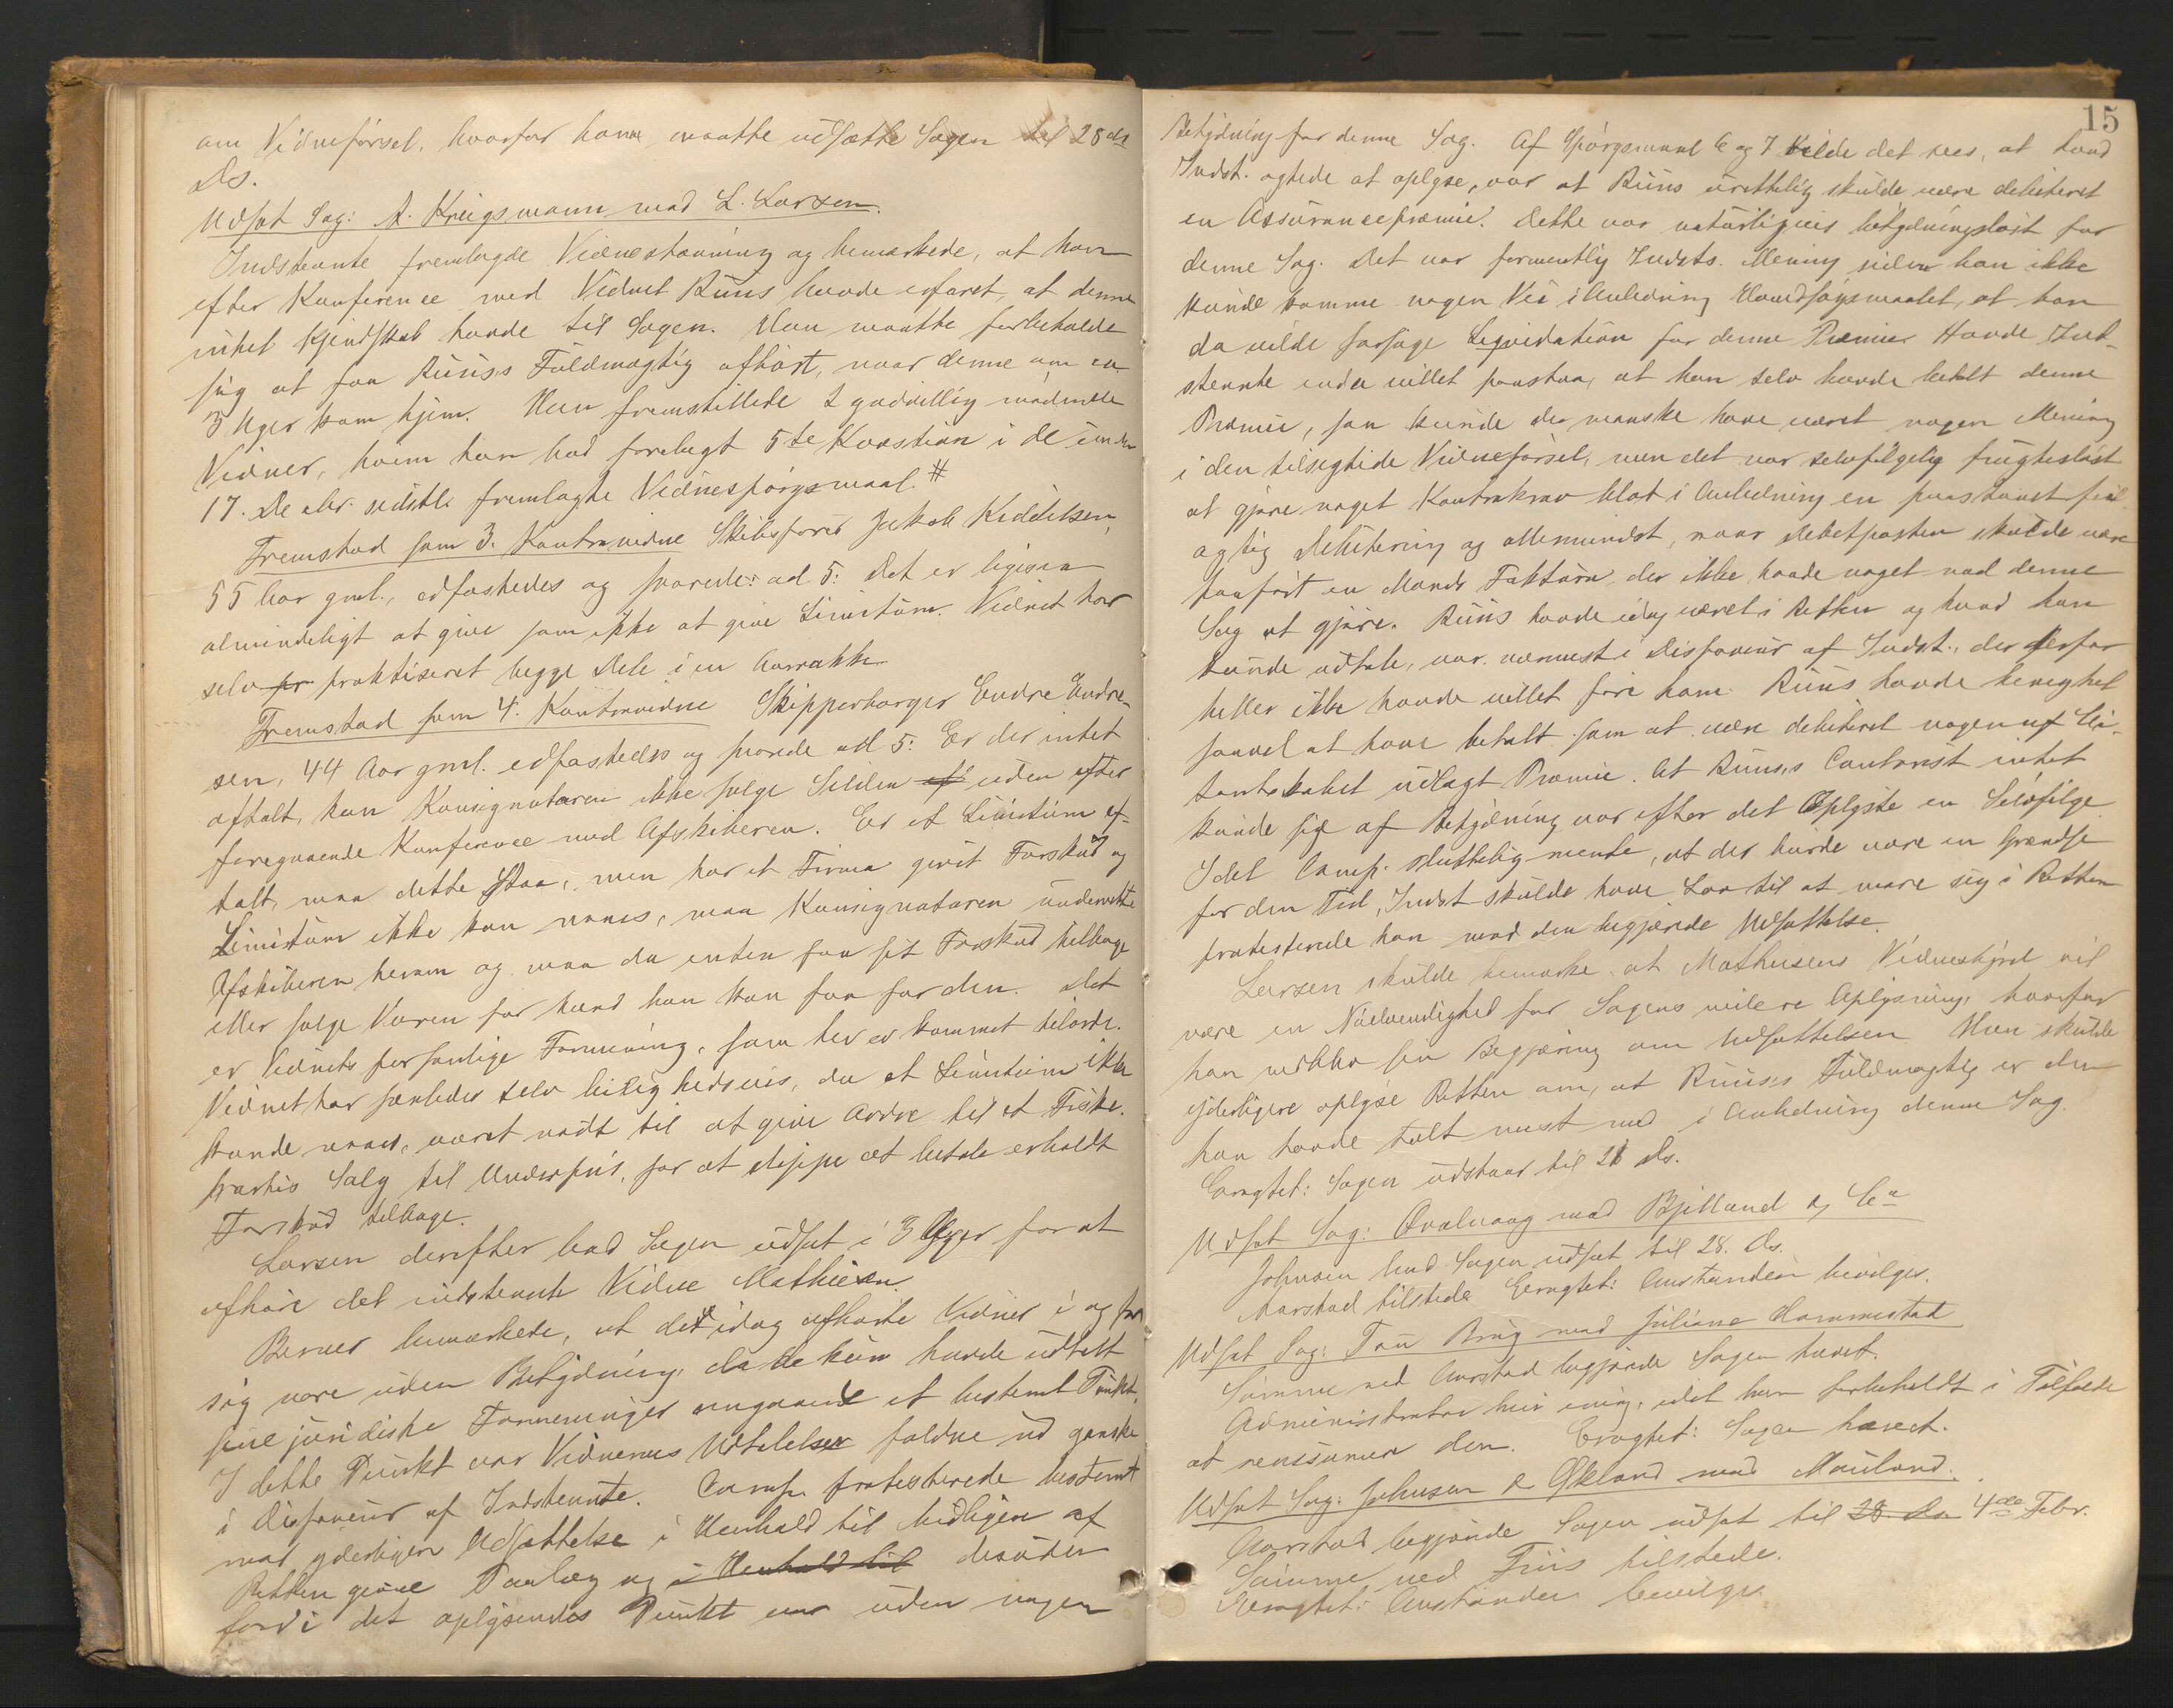 om Vidneførsel, hvorfor han maatte udsætte Sagen til 28de
Ds.
Udsat Sag: A. Kriegsmann mod L. Larsen.
Indstevnte fremlagde Vidnestævning og bemærkede, at han
efter Konference med Vidnet Ruus havde erfaret, at denne
intet Kjendskab havde til Sagen. Han maatte forbeholde
sig at faa Ruus's Fuldmægtig afhørt, naar denne om ca
3 Uger kom hjem. Han fremstillede 2 godvillig mødende
Vidner, hvem han bad forelagt 5te Kvæstion i de under
17. Decbr. sidstl. fremlagte Vidnespørgsmaal. #
Fremstod som 3. Kontravidne Skibsfører Jakob Kiddelsen,
55 Aar gml., edfæstedes og svarede: ad 5: Det er ligesaa
almindeligt at give som ikke at give Limitum. Vidnet har
selv pr praktiseret begge Dele i en Aarrække.
Fremstod som 4. Kontravidne Skipperborger Endre Endre-
sen, 44 Aar gml. edfæstedes og svarede ad 5: Er der intet
aftalt, kan Konsignatæren ikke sælge Silden af uden efter
foregaaende Konference med Afskiberen. Er et Limitum af-
talt, maa dette staa, men har et Firma givet Forskud og
Limitum ikke kan naaes, maa Konsignatæren underrette
Afskiberen herom og maa da enten faa sit Forskud tilbage
eller sælge Varen for hvad han kan faa for den. Det
er Vidnets personlige Formening, som her er kommet tilorde.
Vidnet har særledes selv leilighedsvis, da et Limitum ikke
kunde naaes, været nødt til at give Ordre til et Fiske-
partis Salg til Underpris, for at slippe at betale erholdt
Forskud tilbage.
Larsen derefter bad Sagen udsat i 3 Uger for at
afhøre det indstevnte Vidne Mathiesen.
Berner bemærkede, at det idag afhørte Vidner i og for
sig vare uden Betydning, da de kun havde udtalt
sine juridiske Formeninger angaaende et bestemt Punkt.
I dette Punkt var Vidnernes Udtalelser faldne ud ganske
i Disfaveur af Indstevnte. Comp. protesterede bestemt
mod yderligere Udsættelse i Henhold til tidligere af
Retten givne Paalæg og i Henhold til desuden
fordi det oplysendes Punkt var uden nogen
15
Betydning for denne Sag. Af Spørgsmaal 6 og 7 vilde det sees, at hvad
Indst. agtede at oplyse, var at Ruus urettelig skulde være debiteret
en Assurancepræmie. Dette var naturligvis betydningsløst for
denne Sag. Det var formentlig Indsts. Mening siden han ikke
kunde komme nogen Vei i Anledning Hovedsøgsmaalet, at han
da vilde forsøge Liqvidation for denne Præmie. Havde Ind-
stevnte endda villet paastaa, at han selv havde betalt denne
Præmie, saa kunde der maaske have været nogen Mening
i den tilsigtede Vidneførsel, men det var selvfølgelig frugtesløst
at gjøre noget Kontrakrav blot i Anledning en paastaaet feil-
agtig Debitering og allermindst, naar Debetposten skulde være
paaført en Mands Faktura, der ikke havde noget med denne
Sag at gjøre. Ruus havde idag været i Retten og hvad han
kunde udtale, var nærmest i Disfaveur af Indst., der derfor
heller ikke havde villet føre ham. Ruus havde benegtet
saavel at have betalt som at være debiteret nogen af Ci-
tantskabet udlagt Præmie. At Ruus's Contorist intet
kunde sige af Betydning var efter det Oplyste en Selvfølge
Idet Comp. sluttelig mente, at der burde være en Grændse
for den Tid, Indst skulde have Lov til at more sig i Retten
protesterede han mod den begjærede Udsættelse.
Larsen skulde bemærke, at Mathiesens Vidneskyrd vil
være en Nødvendighed for Sagens videre Oplysning, hvorfor
han vedblev sin Begjæring om Udsættelsen. Han skulde
yderligere oplyse Retten om, at Ruus's Fuldmægtig er den
han havde talt mest med i Anledning denne Sag.
Eragtet: Sagen udstaar til 21 Ds.
Udsat Sag: Qvalevaag mod Bjelland & Co
Johnsen bad Sagen udsat til 28. Ds.
Aarstad tilstede. Eragtet: Anstanden bevilges.
Udsat Sag: Tou Brug mod Juliane Hammestad
Sømme ved Aarstad begjærede Sagen hævet.
Administrator heri enig, idet han forbeholdt i Tilfælde
at reassumere den. Eragtet: Sagen hævet.
Udsat Sag: Johnsen & Økland mod Mauland.
Aarstad begjærede Sagen udsat til 28. Ds 4de Febr.
Sømme ved Friis tilstede.
Eragtet: Anstanden bevilges.